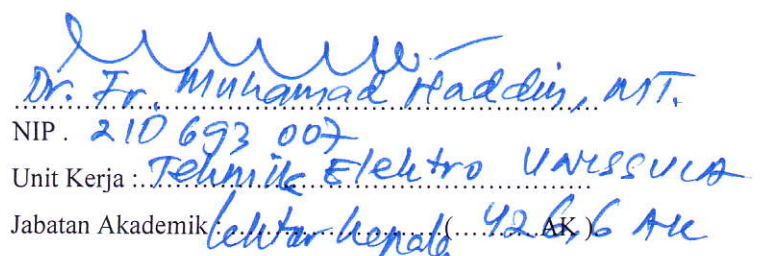 Dr. Ir. Muhamad Haddin, MT.
NIP . 210 693 007
Unit Kerja : Teknik Elektro UNISSULA
Jabatan Akademik : Lektor Kepala ( 426,6 AK AK )